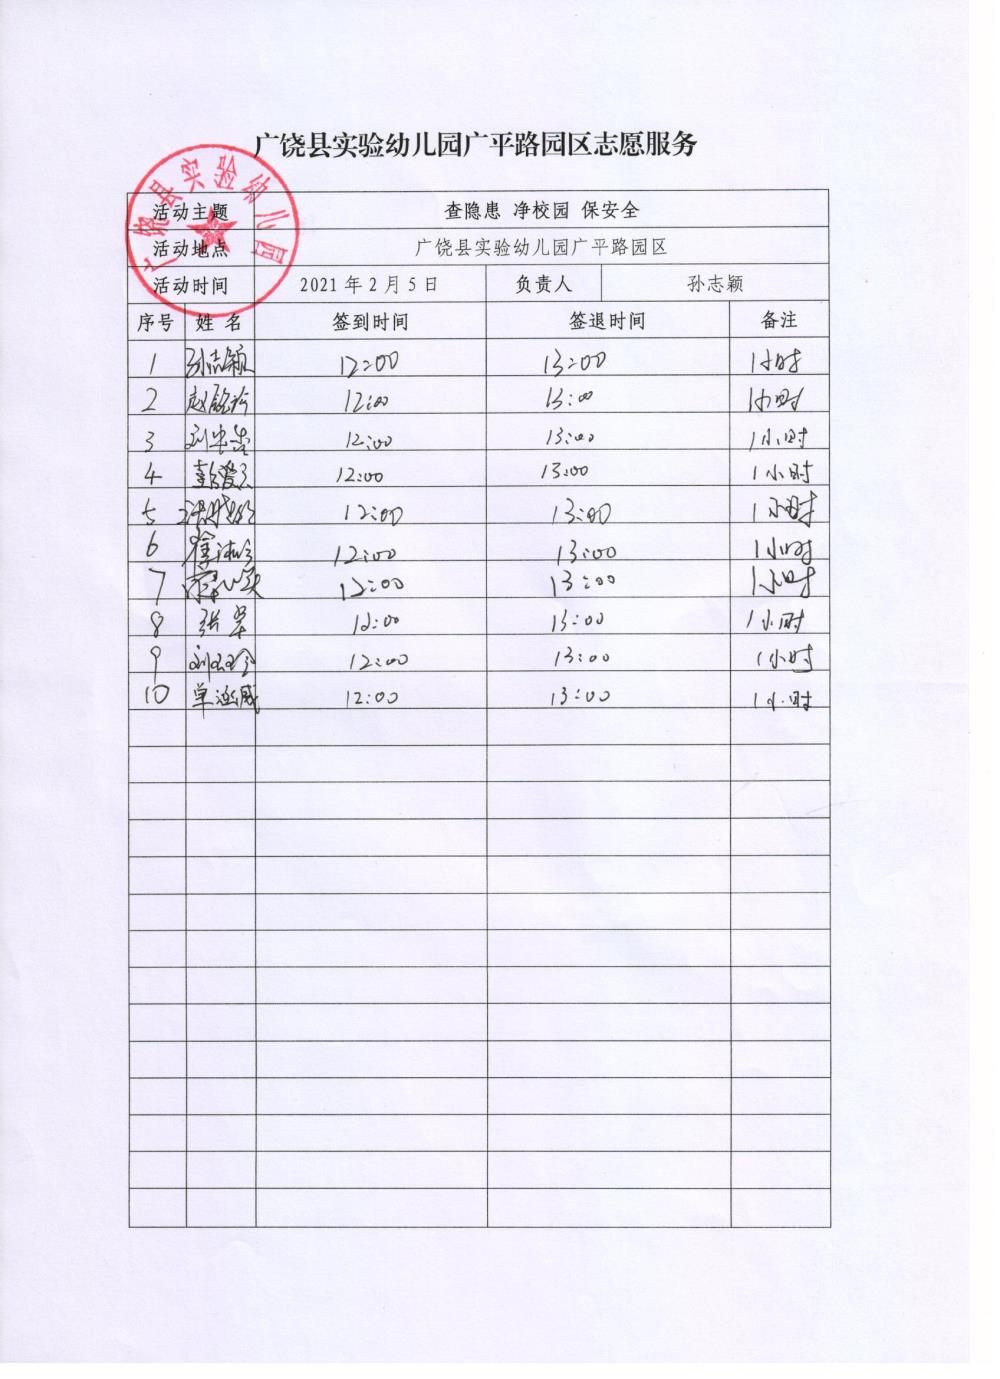 广饶县实验幼儿园广平路园区志愿服务
广饶县实验幼儿园
活动主题 查隐患 净校园 保安全
活动地点 广饶县实验幼儿园广平路园区
活动时间 2021年2月5日 负责人 孙志颖
序号 姓名 签到时间 签退时间 备注
1 孙志颖 12:00 13:00 1小时
2 12:00 13:00 1小时
3 12:00 13:00 1小时
4 12:00 13:00 1小时
5 12:00 13:00 1小时
6 12:00 13:00 1小时
7 12:00 13:00 1小时
8 张翠 12:00 13:00 1小时
9 12:00 13:00 1小时
10 12:00 13:00 1小时